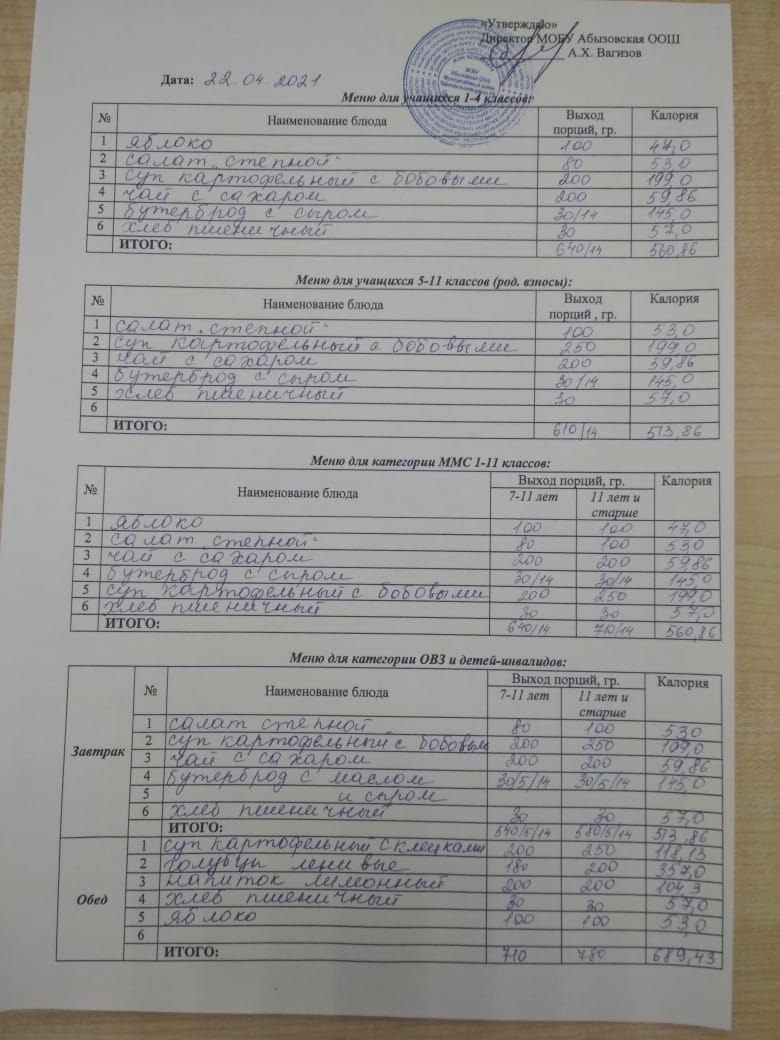 «Утверждаю»
Директор МОБУ Абызовская ООШ
А.Х. Вагизов
МОБУ
Абызовская ООШ
Дата: 22.04.2021
Меню для учащихся 1-4 классов:
№ Наименование блюда Выход порций, гр. Калория
1 яблоко 100 47,0
2 салат „степной" 80 53,0
3 суп картофельный с бобовыми 200 199,0
4 чай с сахаром 200 59,86
5 бутерброд с сыром 30/14 145,0
6 хлеб пшеничный 30 57,0
ИТОГО: 640/14 560,86
Меню для учащихся 5-11 классов (род. взносы):
№ Наименование блюда Выход порций , гр. Калория
1 салат „степной" 100 53,0
2 суп картофельный с бобовыми 250 199,0
3 чай с сахаром 200 59,86
4 бутерброд с сыром 30/14 145,0
5 хлеб пшеничный 30 57,0
6
ИТОГО: 610/14 513,86
Меню для категории ММС 1-11 классов:
№ Наименование блюда Выход порций, гр. Калория
7-11 лет 11 лет и старше
1 яблоко 100 100 47,0
2 салат „степной" 80 100 53,0
3 чай с сахаром 200 200 59,86
4 бутерброд с сыром 30/14 30/14 145,0
5 суп картофельный с бобовыми 200 250 199,0
6 хлеб пшеничный 30 30 57,0
ИТОГО: 640/14 710/14 560,86
Меню для категории ОВЗ и детей-инвалидов:
№ Наименование блюда Выход порций, гр. Калория
7-11 лет 11 лет и старше
Завтрак
1 салат степной 80 100 53,0
2 суп картофельный с бобовым 200 250 199,0
3 чай с сахаром 200 200 59,86
4 бутерброд с маслом 30/5/14 30/5/14 145,0
5 и сыром
6 хлеб пшеничный 30 30 57,0
ИТОГО: 540/5/14 580/5/14 513,86
Обед
1 суп картофельный с клецками 200 250 118,13
2 голубцы ленивые 180 200 357,0
3 напиток лимонный 200 200 104,3
4 хлеб пшеничный 30 30 57,0
5 яблоко 100 100 53,0
6
ИТОГО: 710 780 689,43